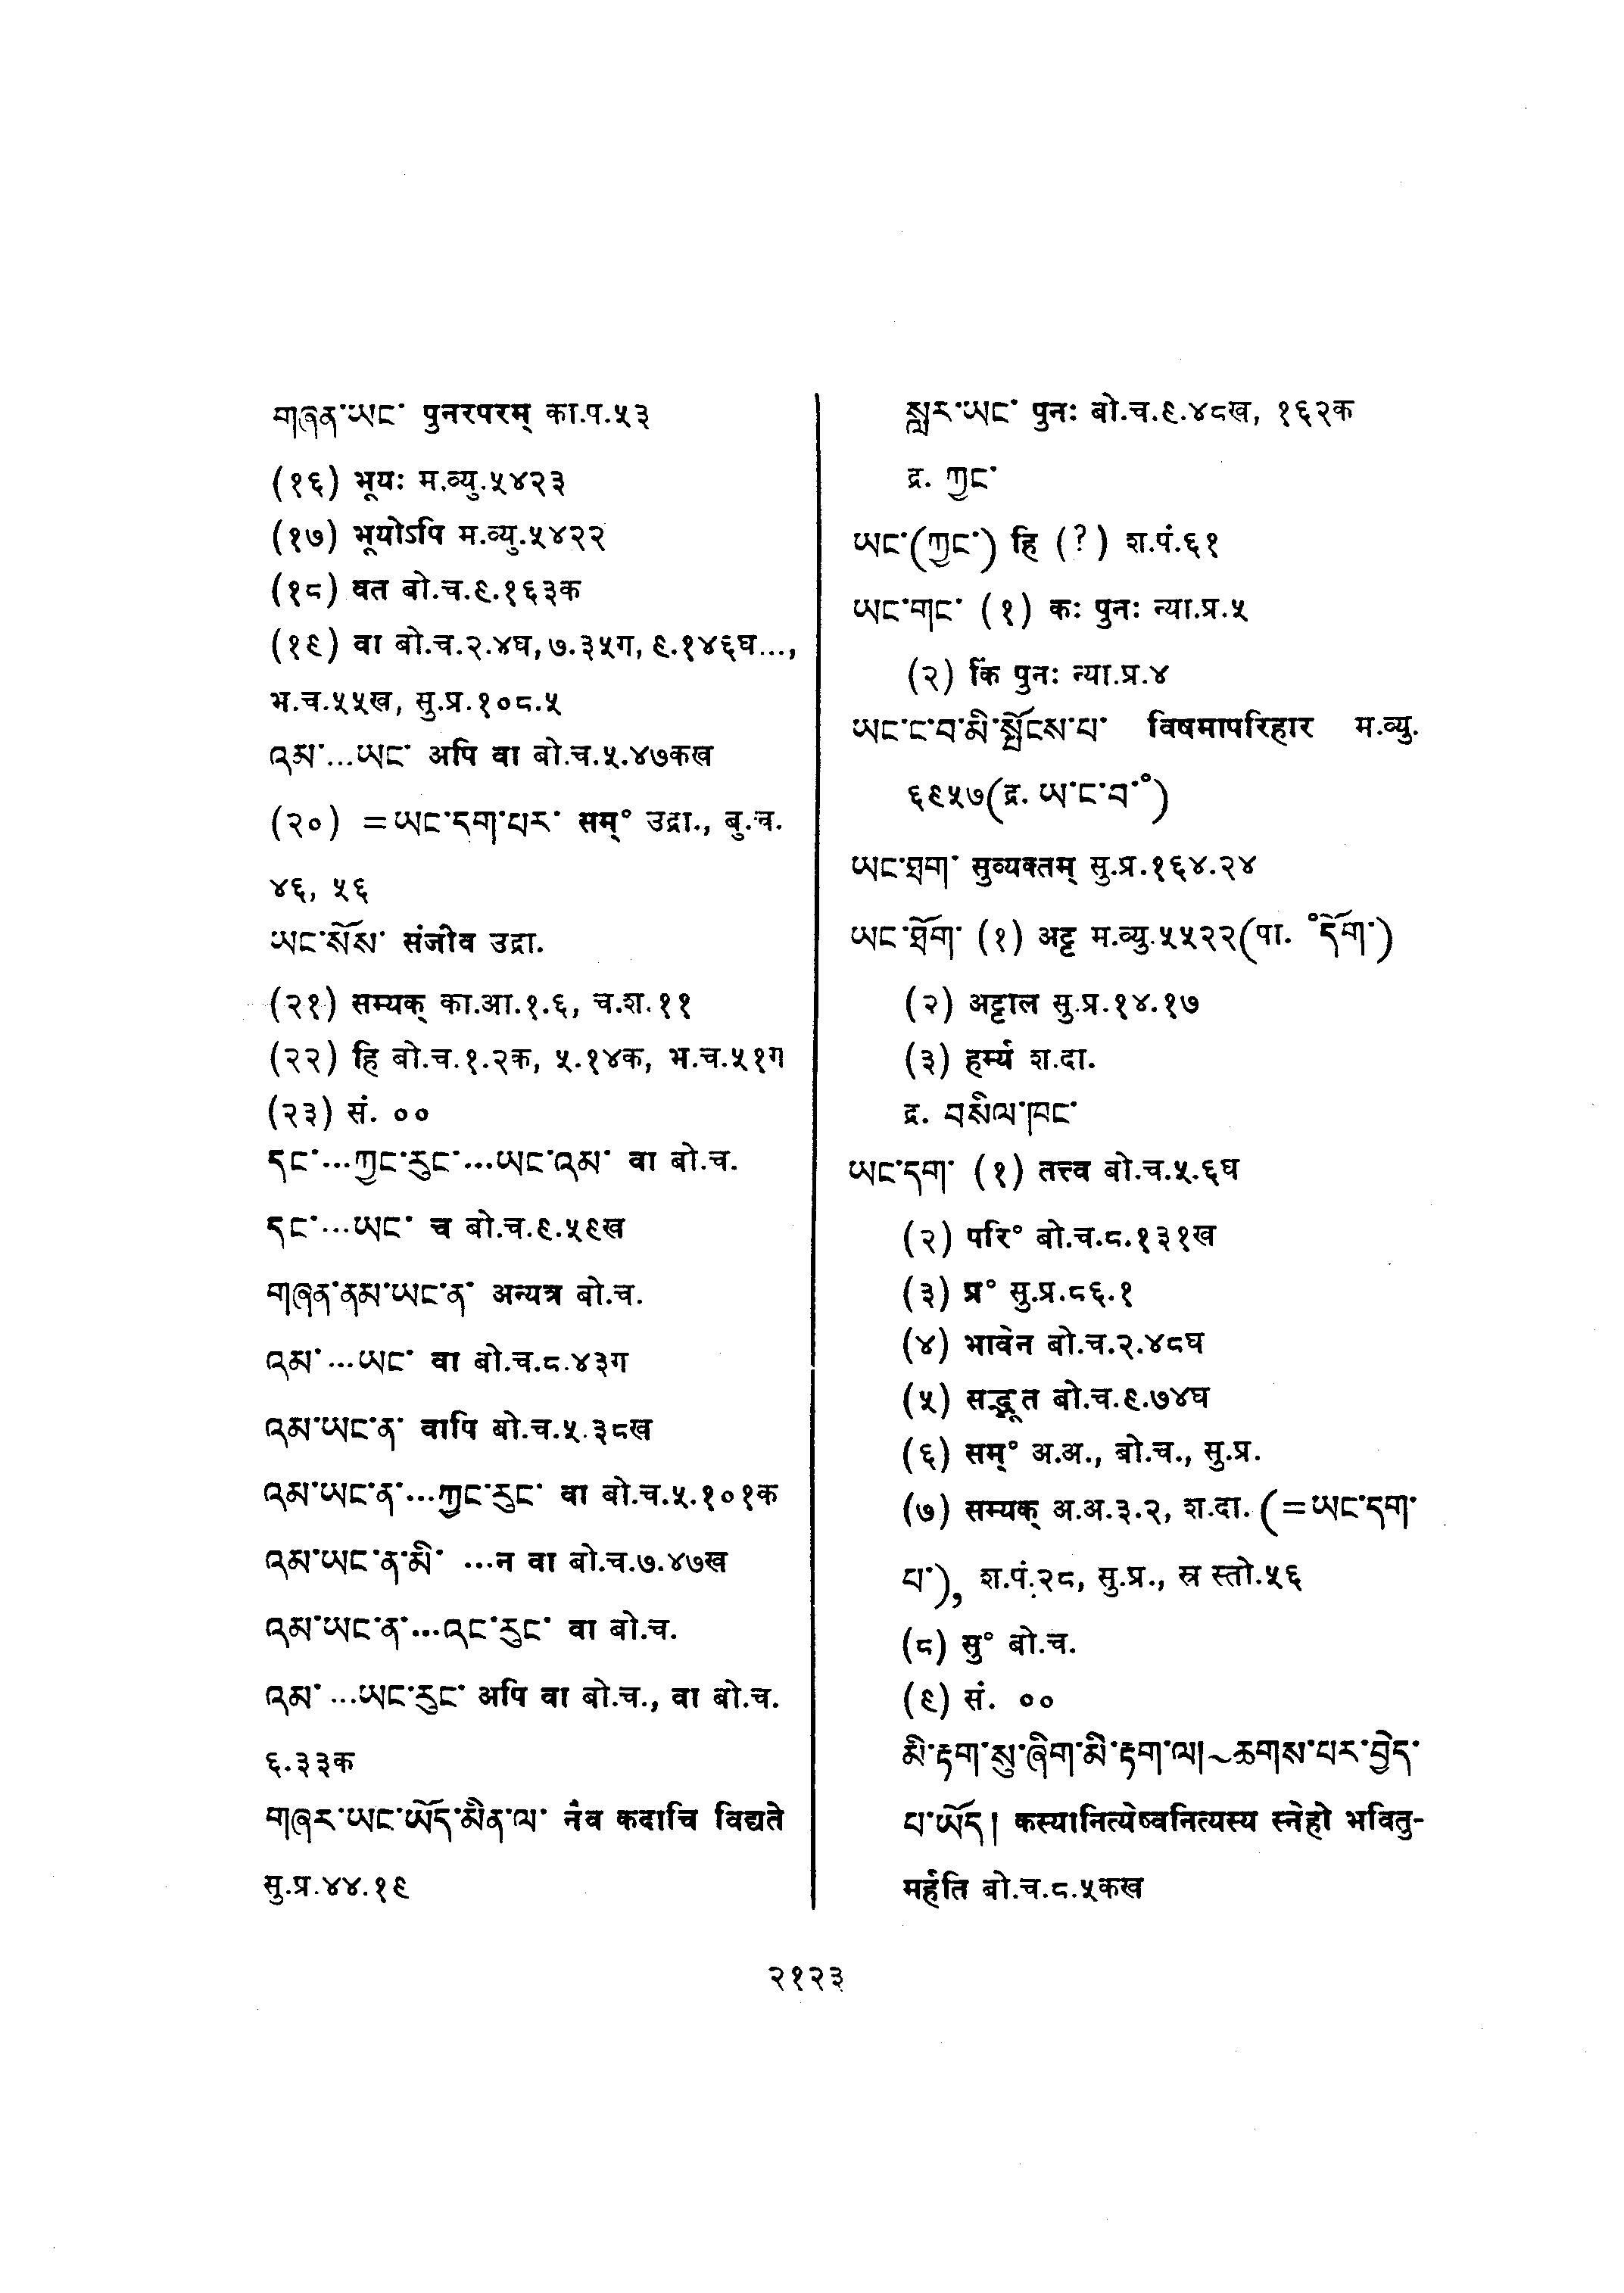 གཞན་ཡང་ पुनरपरम् का.प.५३
(१६) भूयः म.व्यु.५४२३
(१७) भूयोऽपि म.व्यु.५४२२
(१८) वत बो.च.९.१६३क
(१९) वा बो.च.२.४घ, ७.३५ग, ९.१४६घ...,
भ.च.५५ख, सु.प्र.१०८.५
འམ་...ཡང་ अपि वा बो.च.५.४७कख
(२०) =ཡང་དག་པར་ सम्° उद्रा., बु.च.
४६, ५६
ཡང་སོས་ संजीव उद्रा.
(२१) सम्यक् का.आ.१.६, च.श.११
(२२) हि बो.च.१.२क, ५.१४क, भ.च.५१ग
(२३) सं. ००
དང་...ཀྱང་རུང་...ཡང་འམ་ वा बो.च.
དང་...ཡང་ च बो.च.९.५९ख
གཞན་ནམ་ཡང་ན་ अन्यत्र बो.च.
འམ་...ཡང་ वा बो.च.८.४३ग
འམ་ཡང་ན་ वापि बो.च.५.३८ख
འམ་ཡང་ན་...ཀྱང་རུང་ वा बो.च.५.१०१क
འམ་ཡང་ན་མི་ ...न वा बो.च.७.४७ख
འམ་ཡང་ན་...འང་རུང་ वा बो.च.
འམ་...ཡང་རུང་ अपि वा बो.च., वा बो.च.
६.३३क
གཞར་ཡང་ཡོད་མིན་ལ་ नैव कदाचि विद्यते
सु.प्र.४४.१९
སླར་ཡང་ पुनः बो.च.९.४८ख, १६२क
द्र. ཀྱང་
ཡང་(ཀྱང་) हि (?) श.पं.६१
ཡང་གང་ (१) कः पुनः न्या.प्र.५
(२) किं पुनः न्या.प्र.४
ཡང་ང་བ་མི་སྤོངས་པ་ विषमापरिहार म.व्यु.
६९५७(द्र. ཡ་ང་བ་°)
ཡང་ཐག་ सुव्यक्तम् सु.प्र.१६४.२४
ཡང་ཐོག་ (१) अट्ट म.व्यु.५५२२(पा. °དོག་)
(२) अट्टाल सु.प्र.१४.१७
(३) हर्म्य श.दा.
द्र. བསིལ་ཁང་
ཡང་དག་ (१) तत्त्व बो.च.५.६घ
(२) परि° बो.च.८.१३१ख
(३) प्र° सु.प्र.८६.१
(४) भावेन बो.च.२.४८घ
(५) सद्भूत बो.च.९.७४घ
(६) सम्° अ.अ., बो.च., सु.प्र.
(७) सम्यक् अ.अ.३.२, श.दा. (=ཡང་དག་
པ་), श.पं.२८, सु.प्र., स्र स्तो.५६
(८) सु° बो.च.
(९) सं. ००
མི་རྟག་སུ་ཞིག་མི་རྟག་ལ།~ཆགས་པར་བྱེད་
པ་ཡོད། कस्यानित्येष्वनित्यस्य स्नेहो भवितु-
मर्हति बो.च.८.५कख
२१२३